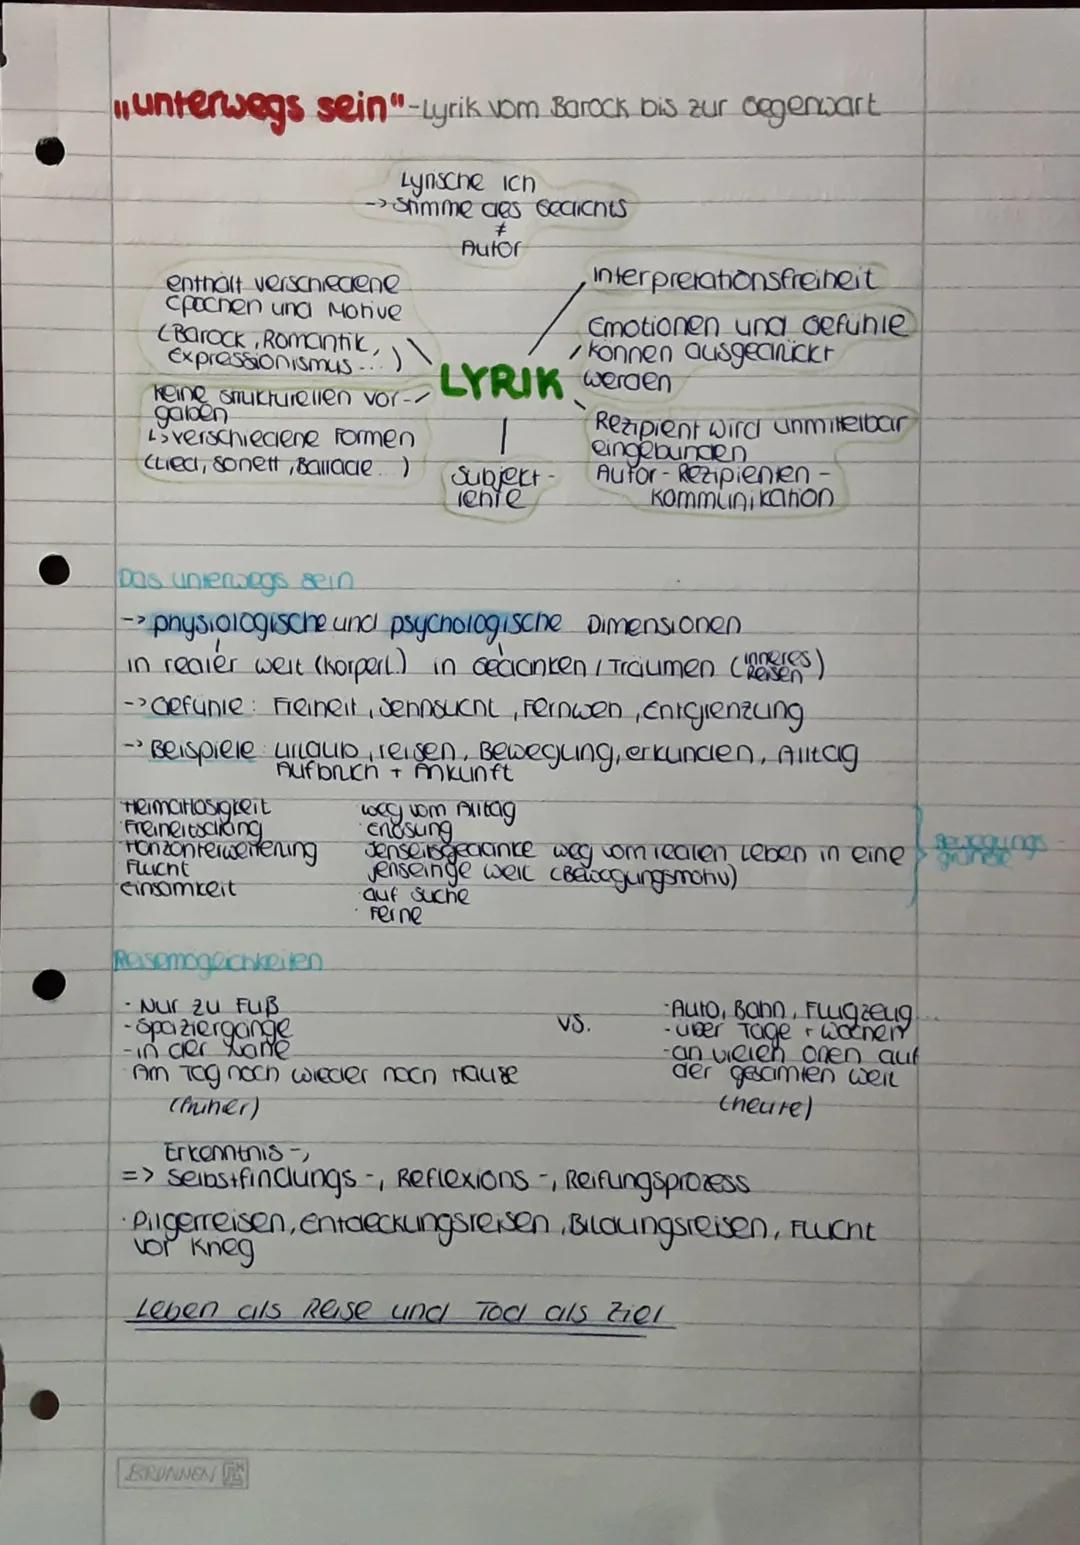 „unterwegs sein" - Lyrik vom Barock bis zur Gegenwart
Lyrische Ich
-> Stimme des Gedichts
≠
Autor
enthält verschiedene
Epochen und Motive
(Barock, Romantik,
Expressionismus...)
keine strukturellen Vor-
gaben
↳ verschiedene Formen
(Lied, Sonett, Ballade...)
LYRIK
Subjekt-
lehre
Interpretationsfreiheit
Emotionen und Gefühle
können ausgedrückt
werden
Rezipient wird unmittelbar
eingebunden
Autor - Rezipienten -
Kommunikation
Das unterwegs sein
-> physiologische und psychologische Dimensionen
in realer Welt (körperl.) in Gedanken / Träumen (inneres Reisen)
-> Gefühle: Freiheit, Sehnsucht, Fernweh, Entgrenzung
-> Beispiele: Urlaub, reisen, Bewegung, erkunden, Alltag
Aufbruch + Ankunft
Heimatlosigkeit
Freiheitsdrang
Horizonterweiterung
Flucht
Einsamkeit
weg vom Alltag
· Erlösung
Jenseitsgedanke weg vom realen Leben in eine
jenseitige Welt (Bewegungsmotiv)
auf Suche
· Ferne
Bewegungs-
gründe
Reisemöglichkeiten
- Nur zu Fuß
- Spaziergänge
- in der Nähe
Am Tag noch wieder nach Hause
(früher)
vs.
- Auto, Bahn, Flugzeug...
- über Tage + Wochen
- an vielen Orten auf
der gesamten Welt
(heute)
Erkenntnis-,
=> Selbstfindungs-, Reflexions-, Reifungsprozess
· Pilgerreisen, Entdeckungsreisen, Bildungsreisen, Flucht
vor Krieg
Leben als Reise und Tod als Ziel
BRUNNEN